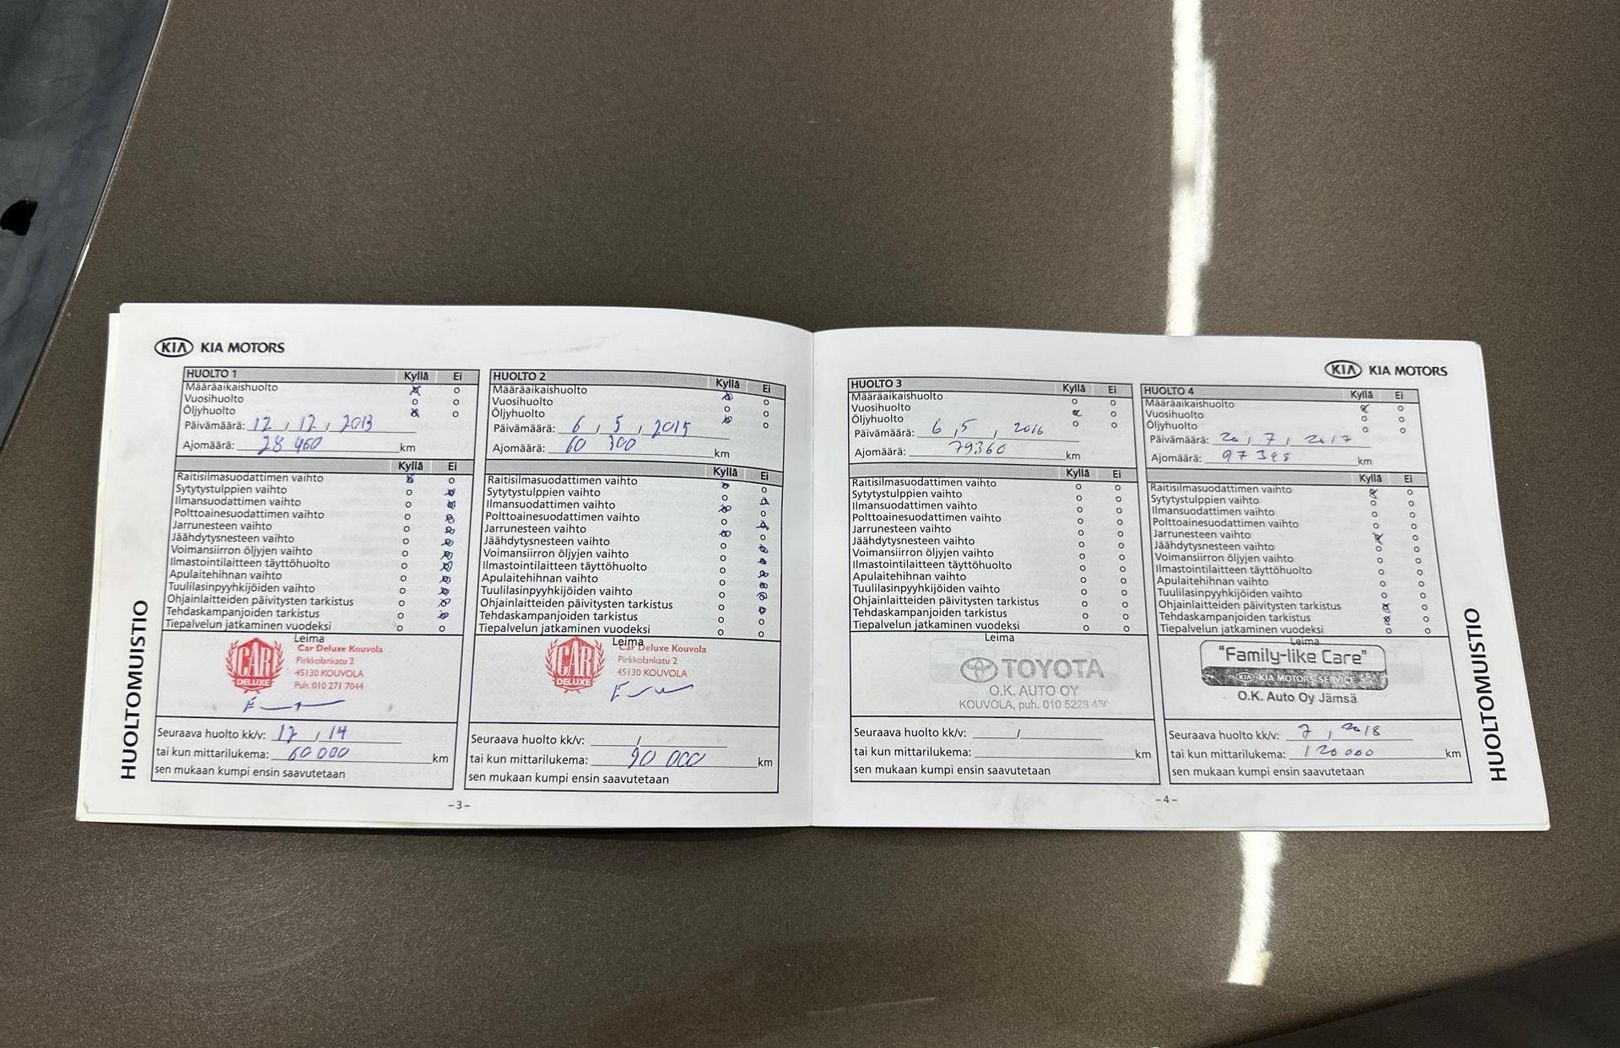 KIA KIA MOTORS
HUOLTO 1 Kyllä Ei
Määräaikaishuolto
Vuosihuolto
Öljyhuolto
Päivämäärä: 12, 12, 2013
Ajomäärä: 28 460 km
Kyllä Ei
Raitisilmasuodattimen vaihto
Sytytystulppien vaihto
Ilmansuodattimen vaihto
Polttoainesuodattimen vaihto
Jarrunesteen vaihto
Jäähdytysnesteen vaihto
Voimansiirron öljyjen vaihto
Ilmastointilaitteen täyttöhuolto
Apulaitehihnan vaihto
Tuulilasinpyyhkijöiden vaihto
Ohjainlaitteiden päivitysten tarkistus
Tehdaskampanjoiden tarkistus
Tiepalvelun jatkaminen vuodeksi
Leima
CAR DELUXE
Car Deluxe Kouvola
Pirkkolankatu 2
45130 KOUVOLA
Puh. 010 271 7044
Seuraava huolto kk/v: 12, 14
tai kun mittarilukema: 60 000 km
sen mukaan kumpi ensin saavutetaan
HUOLTO 2 Kyllä Ei
Määräaikaishuolto
Vuosihuolto
Öljyhuolto
Päivämäärä: 6, 5, 2015
Ajomäärä: 60 300 km
Kyllä Ei
Raitisilmasuodattimen vaihto
Sytytystulppien vaihto
Ilmansuodattimen vaihto
Polttoainesuodattimen vaihto
Jarrunesteen vaihto
Jäähdytysnesteen vaihto
Voimansiirron öljyjen vaihto
Ilmastointilaitteen täyttöhuolto
Apulaitehihnan vaihto
Tuulilasinpyyhkijöiden vaihto
Ohjainlaitteiden päivitysten tarkistus
Tehdaskampanjoiden tarkistus
Tiepalvelun jatkaminen vuodeksi
Leima
CAR DELUXE
Car Deluxe Kouvola
Pirkkolankatu 2
45130 KOUVOLA
Seuraava huolto kk/v: /
tai kun mittarilukema: 90 000 km
sen mukaan kumpi ensin saavutetaan
HUOLTOMUISTIO
-3-
KIA KIA MOTORS
HUOLTO 3 Kyllä Ei
Määräaikaishuolto
Vuosihuolto
Öljyhuolto
Päivämäärä: 6, 5, 2016
Ajomäärä: 79360 km
Kyllä Ei
Raitisilmasuodattimen vaihto
Sytytystulppien vaihto
Ilmansuodattimen vaihto
Polttoainesuodattimen vaihto
Jarrunesteen vaihto
Jäähdytysnesteen vaihto
Voimansiirron öljyjen vaihto
Ilmastointilaitteen täyttöhuolto
Apulaitehihnan vaihto
Tuulilasinpyyhkijöiden vaihto
Ohjainlaitteiden päivitysten tarkistus
Tehdaskampanjoiden tarkistus
Tiepalvelun jatkaminen vuodeksi
Leima
TOYOTA
O.K. AUTO OY
KOUVOLA, puh. 010 5228 430
Seuraava huolto kk/v: /
tai kun mittarilukema: km
sen mukaan kumpi ensin saavutetaan
HUOLTO 4 Kyllä Ei
Määräaikaishuolto
Vuosihuolto
Öljyhuolto
Päivämäärä: 20, 7, 2017
Ajomäärä: km
Kyllä Ei
Raitisilmasuodattimen vaihto
Sytytystulppien vaihto
Ilmansuodattimen vaihto
Polttoainesuodattimen vaihto
Jarrunesteen vaihto
Jäähdytysnesteen vaihto
Voimansiirron öljyjen vaihto
Ilmastointilaitteen täyttöhuolto
Apulaitehihnan vaihto
Tuulilasinpyyhkijöiden vaihto
Ohjainlaitteiden päivitysten tarkistus
Tehdaskampanjoiden tarkistus
Tiepalvelun jatkaminen vuodeksi
Leima
"Family-like Care"
KIA KIA MOTORS SERVICE
O.K. Auto Oy Jämsä
Seuraava huolto kk/v: 7, 2018
tai kun mittarilukema: 120 000 km
sen mukaan kumpi ensin saavutetaan
HUOLTOMUISTIO
-4-